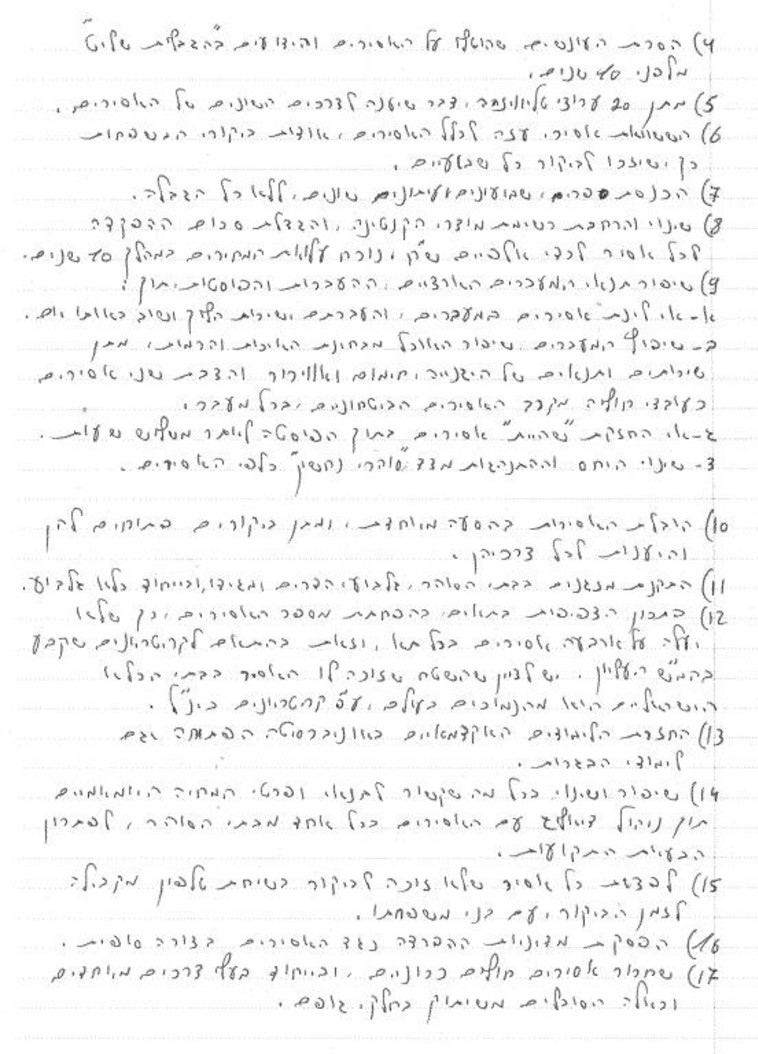 4) הסרת העונשים שהוטלו על האסירים והידועים ב"הגבלות שליט"
מלפני 10 שנים.
5) מתן 20 ערוצי טלוויזיה, דבר שיענה לצרכים השונים של האסירים.
6) השוואת אסירי עזה לכלל האסירים, אודות ביקורי המשפחות
כך שיזכו לביקור כל שבועיים.
7) הכנסת ספרים, שבועונים ועיתונים שונים, ללא כל הגבלה.
8) שינוי והרחבת רשימת מוצרי הקנטינה, והגדלת סכום ההפקדה
לכל אסיר לכדי אלפיים ש"ח, נוכח עלויות המחירים במהלך 10 שנים.
9) שיפור תנאי המעברים הארציים, ההעברות והפוסטות, תוך:
א- אי לינת אסירים במעברים, והעברתם ישירות הלוך ושוב באותו יום.
ב- שיפוץ המעברים, שיפור האוכל מבחינת האיכות והרמות, מתן
שירותים ותנאים של היגנייה, חימום ואוורור והצבת שני אסירים
כעובדי חוליה מקרב האסירים הביטחוניים, בכל מעבר.
ג- אי החזקת "שהיית" אסירים בתוך הפוסטה ליותר משלוש שעות.
ד- שינוי היחס וההתנהגות מצד "סוהרי נחשון" כלפי האסירים.
10) הובלת האסירות בהסעה מיוחדת, ומתן ביקורים פתוחים להן
והיענות לכל צרכיהן.
11) התקנת מזגנים בבתי הסוהר, גלבוע, הדרים ומגידו, ובייחוד כלא גלבוע.
12) פתרון הצפיפות בתאים, בהפחתת מספר האסירים, כך שלא
יעלה על ארבעה אסירים בכל תא, וזאת בהתאם לקריטריונים שקבע
בהמ"ש העליון. יש לציין שהשטח שזוכה לו האסיר בבתי הכלא
הישראליים הוא מהנמוכים בעולם, ע"פ קריטריונים בינ"ל.
13) החזרת הלימודים האקדמאיים באוניברסיטה הפתוחה וגם
לימודי הבגרות.
14) שיפור ושינוי בכל מה שקשור לתנאי ופרטי המחיה היומיומיים
תוך ניהול דיאלוג עם האסירים בכל אחד מבתי הסוהר, לפתרון
הבעיות התקועות.
15) לפצות כל אסיר שלא זוכה לביקור בשיחת טלפון מקבילה
לזמן הביקור, עם בני משפחתו.
16) הפסקת מדיניות ההפרדה נגד האסירים בצורה סופית.
17) שחרור אסירים חולים כרוניים, ובייחוד בעלי צרכים מיוחדים
וכאלה הסובלים משיתוק בחלקי גופם.